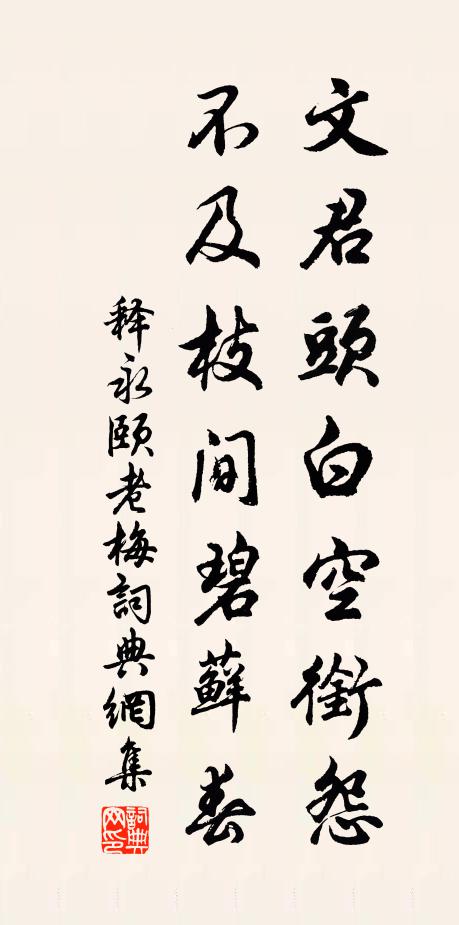 文君頭白空銜怨
不及枝間碧蘚春
釋永頤老梅詞典網集
詞典網印